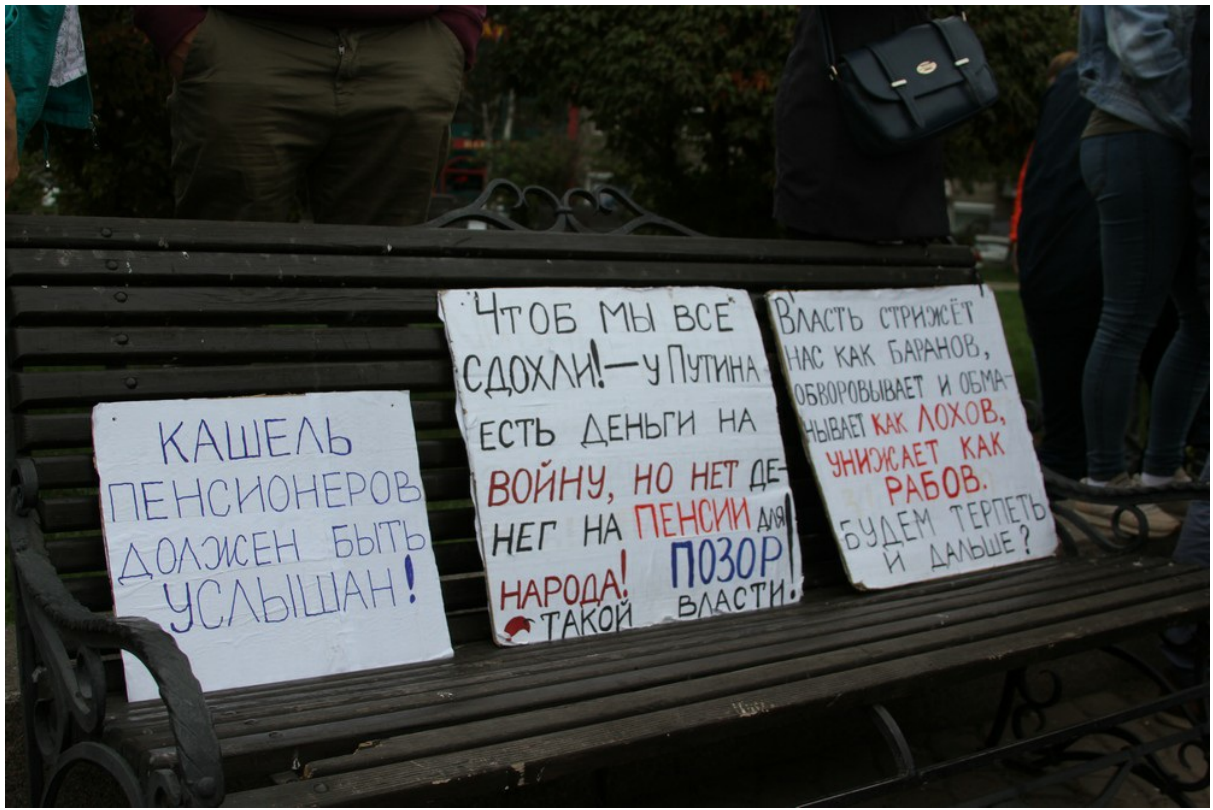 КАШЕЛЬ
ПЕНСИОНЕРОВ
ДОЛЖЕН БЫТЬ
УСЛЫШАН!
"ЧТОБ МЫ ВСЕ
СДОХЛИ!" — У ПУТИНА
ЕСТЬ ДЕНЬГИ НА
ВОЙНУ, НО НЕТ ДЕ-
НЕГ НА ПЕНСИИ ДЛЯ
НАРОДА! ПОЗОР
ТАКОЙ ВЛАСТИ!
ВЛАСТЬ СТРИЖЁТ
НАС КАК БАРАНОВ,
ОБВОРОВЫВАЕТ И ОБМА-
НЫВАЕТ КАК ЛОХОВ,
УНИЖАЕТ КАК
РАБОВ.
БУДЕМ ТЕРПЕТЬ
И ДАЛЬШЕ?